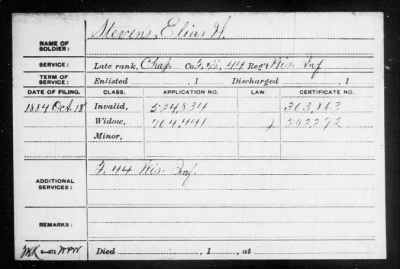 Stevens, Elias H.
NAME OF SOLDIER:
SERVICE: Late rank, Chap. Co. F. S., 44 Reg't Wis. Inf
TERM OF SERVICE: Enlisted , 1 Discharged , 1
DATE OF FILING. CLASS. APPLICATION NO. LAW. CERTIFICATE NO.
1884 Oct. 18 Invalid, 524,834 303,863
Widow, 704,441 502292
Minor,
ADDITIONAL SERVICES: F. 44 Wis. Inf.
REMARKS:
Died , 1 , at